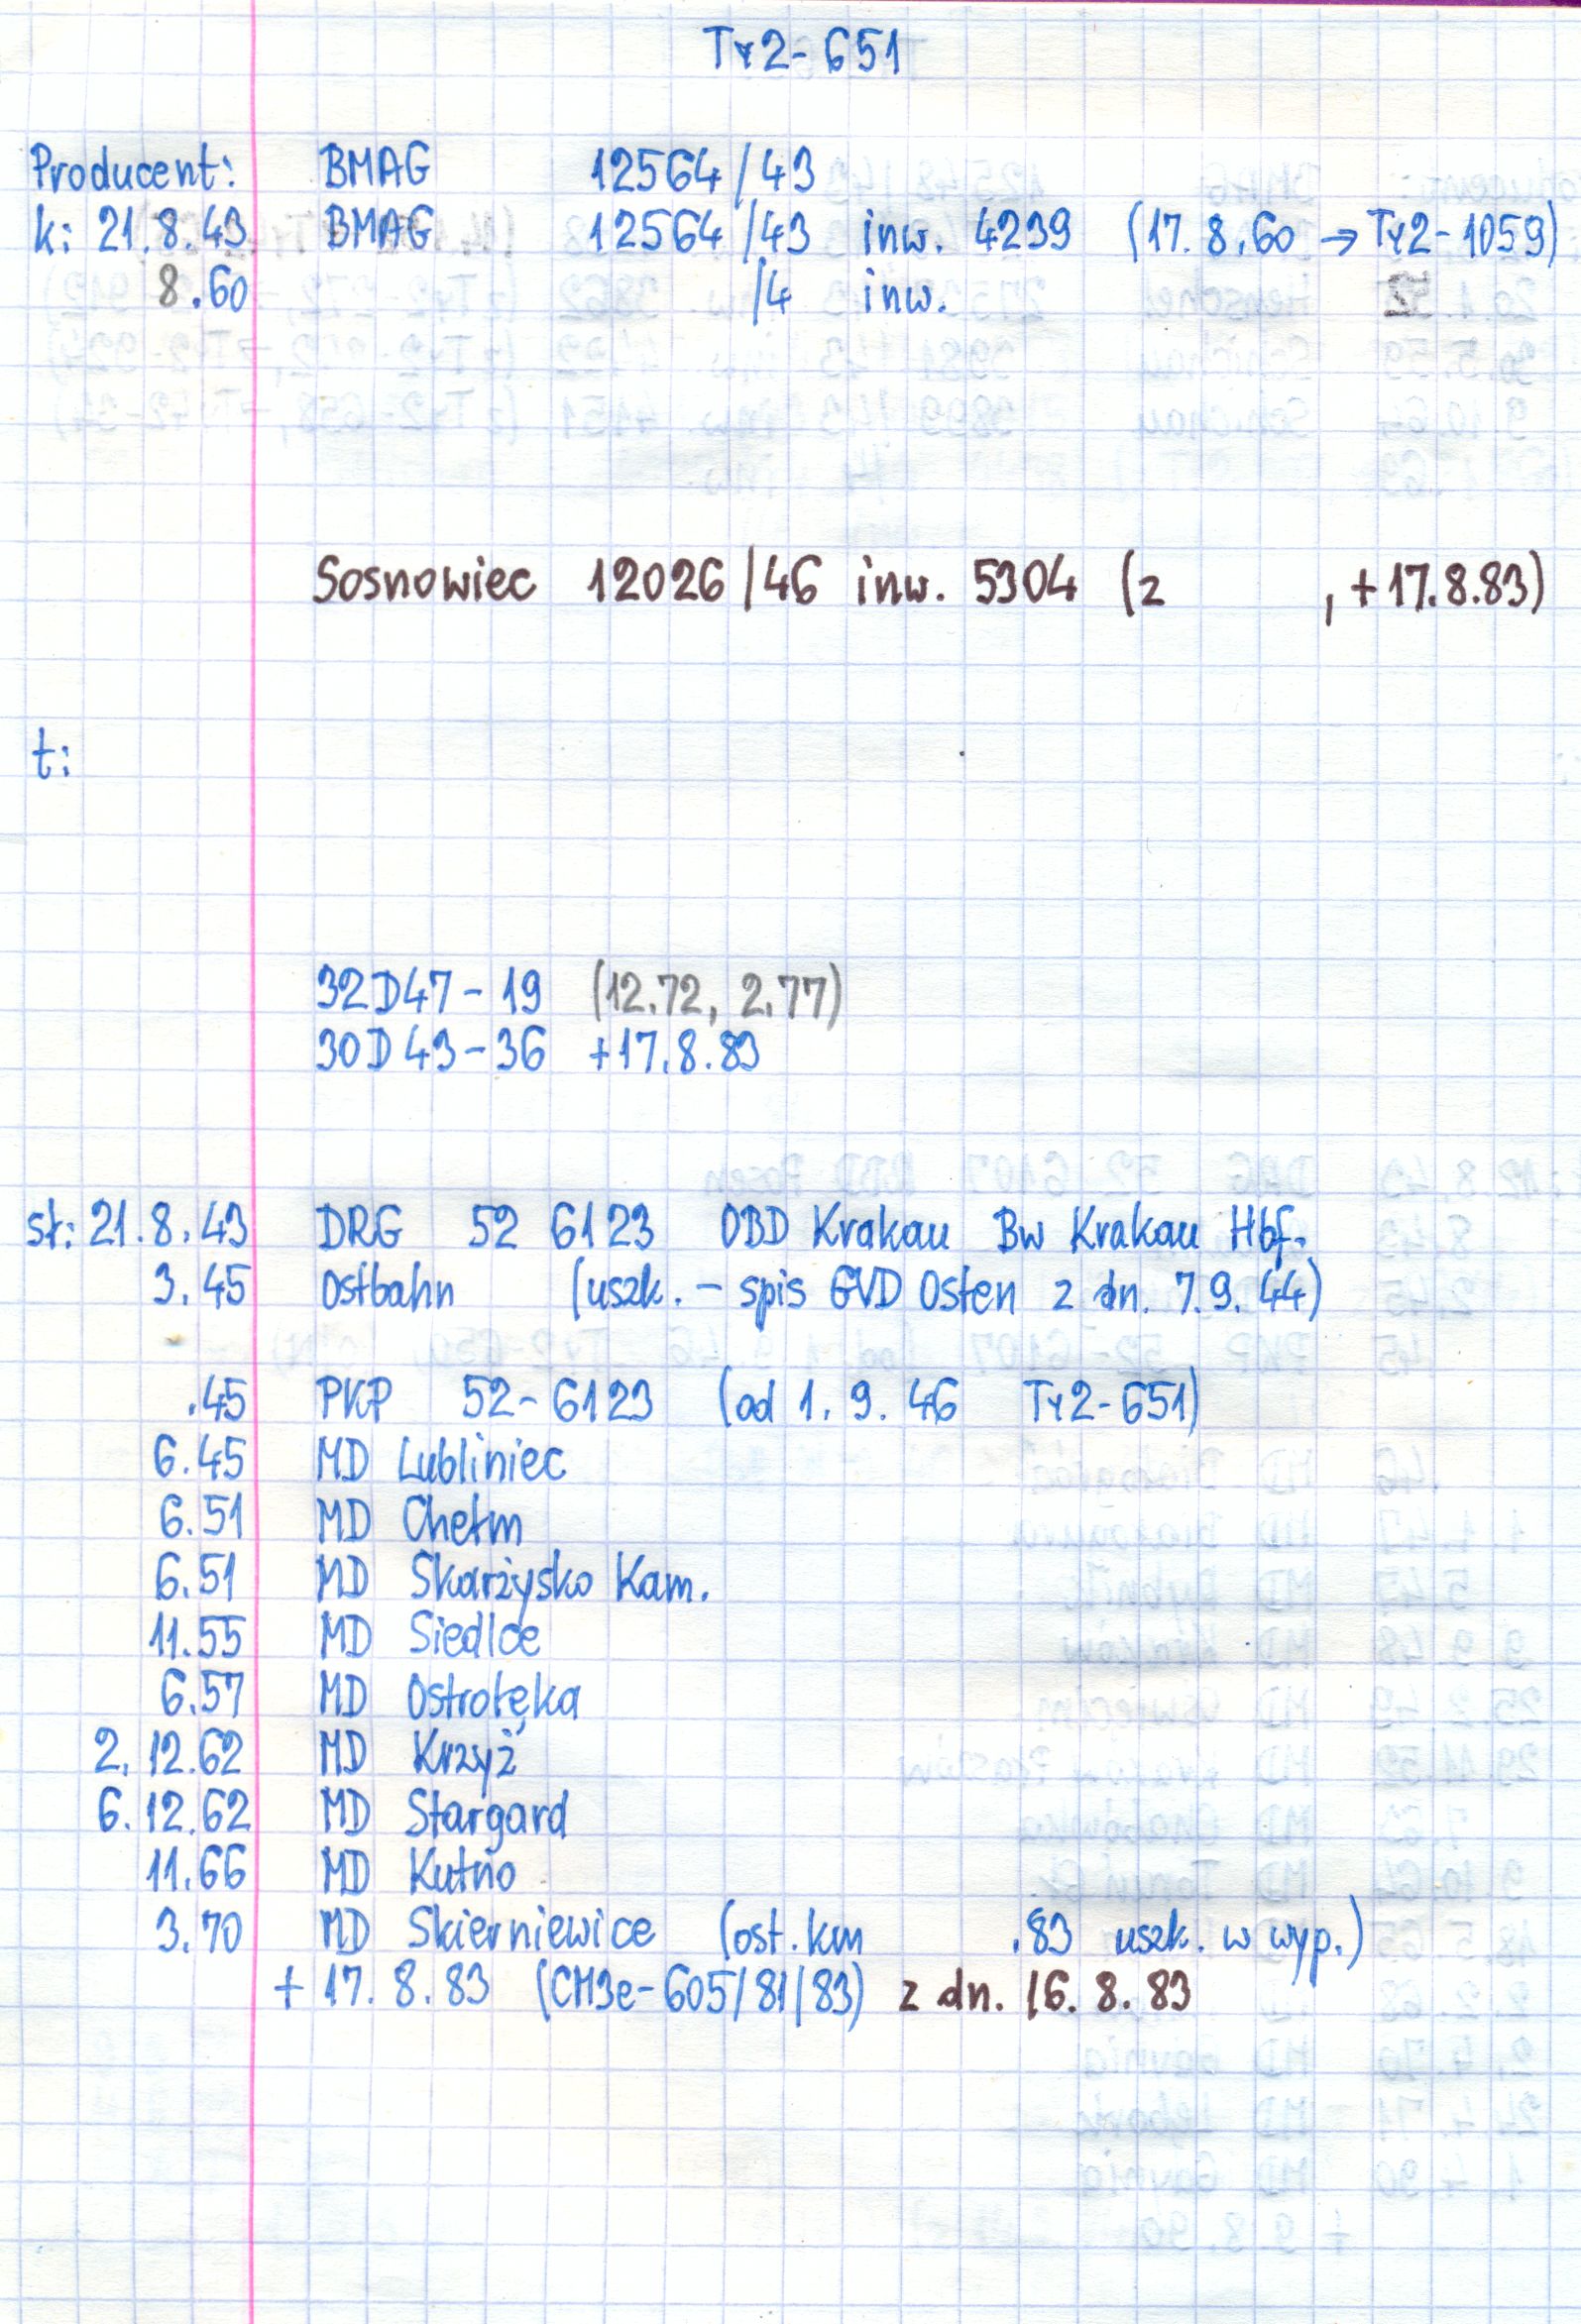 Ty2-651
Producent: BMAG 12564/43
k: 21.8.43 BMAG 12564/43 inw. 4239 (17.8.60 → Ty2-1059)
8.60 /4 inw.
Sosnowiec 12026/46 inw. 5304 (z , +17.8.83)
t:
32D47-19 (12.72, 2.77)
30D43-36 +17.8.83
st: 21.8.43 DRG 52 6123 OBD Krakau Bw Krakau Hbf.
3.45 Ostbahn (uszk. - spis GVD Osten z dn. 7.9.44)
.45 PKP 52-6123 (od 1.9.46 Ty2-651)
6.45 MD Lubliniec
6.51 MD Chełm
6.51 MD Skarżysko Kam.
11.55 MD Siedlce
6.57 MD Ostrołęka
2.12.62 MD Krzyż
6.12.62 MD Stargard
11.66 MD Kutno
3.70 MD Skierniewice (ost. km .83 uszk. w wyp.)
+ 17.8.83 (CM3e-605/81/83) z dn. 16.8.83